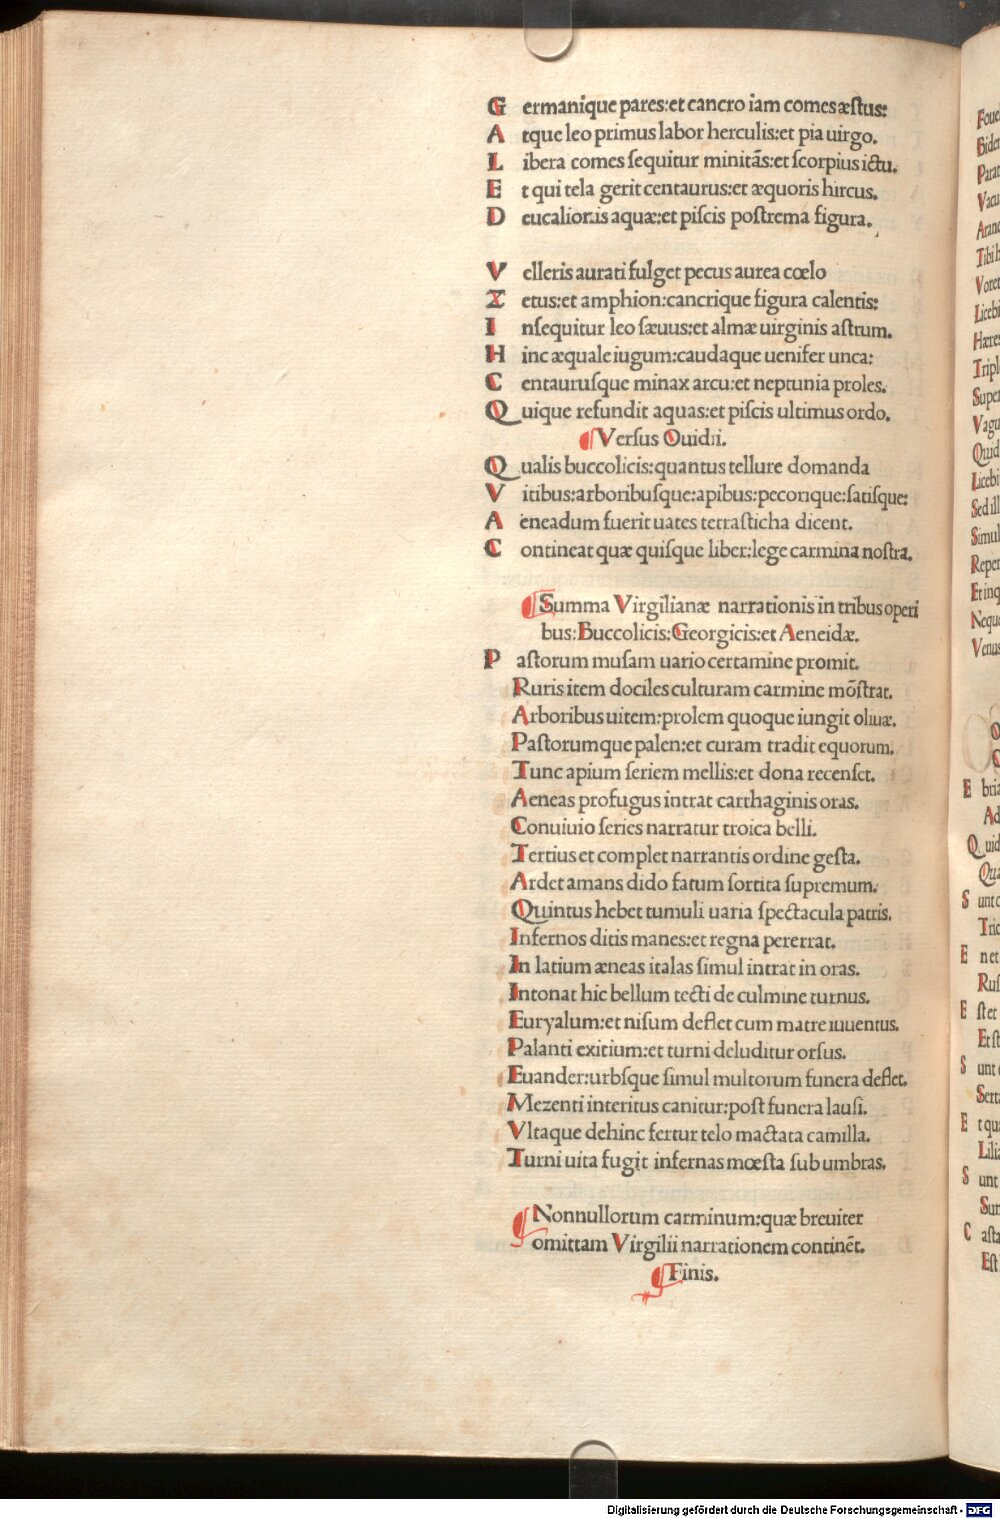 Germanique pares:et cancro iam comes æſtus:
Atque leo primus labor herculis:et pia uirgo.
Libera comes ſequitur minitãs:et ſcorpius ictu.
Et qui tela gerit centaurus:et æquoris hircus.
Deucalionis aquæ:et piſcis poſtrema figura.
Velleris aurati fulget pecus aurea cœlo
Zetus:et amphion:cancrique figura calentis:
Inſequitur leo ſæuus:et almæ uirginis aſtrum.
Hinc æquale iugum:caudaque uenifer unca:
Centauruſque minax arcu:et neptunia proles.
Quique refundit aquas:et piſcis ultimus ordo.
Verſus Ouidii.
Qualis buccolicis:quantus tellure domanda
Vitibus:arboribuſque:apibus:pecorique:ſatiſque:
Aeneadum fuerit uates tetraſticha dicent.
Contineat quæ quiſque liber:lege carmina noſtra.
Summa Virgilianæ narrationis in tribus operi
bus:Buccolicis:Georgicis:et Aeneidæ.
Paſtorum muſam uario certamine promit.
Ruris item dociles culturam carmine mõſtrat.
Arboribus uitem:prolem quoque iungit oliuæ.
Paſtorumque palen:et curam tradit equorum.
Tunc apium ſeriem mellis:et dona recenſet.
Aeneas profugus intrat carthaginis oras.
Conuiuio ſeries narratur troica belli.
Tertius et complet narrantis ordine geſta.
Ardet amans dido fatum ſortita ſupremum.
Quintus hebet tumuli uaria ſpectacula patris.
Infernos ditis manes:et regna pererrat.
In latium æneas italas ſimul intrat in oras.
Intonat hic bellum tecti de culmine turnus.
Euryalum:et niſum deflet cum matre iuuentus.
Palanti exitium:et turni deluditur orſus.
Euander:urbſque ſimul multorum funera deflet.
Mezenti interitus canitur:poſt funera lauſi.
Vltaque dehinc fertur telo mactata camilla.
Turni uita fugit infernas mœſta ſub umbras.
Nonnullorum carminum:quæ breuiter
omittam Virgilii narrationem continẽt.
Finis.
Digitalisierung gefördert durch die Deutsche Forschungsgemeinschaft - DFG